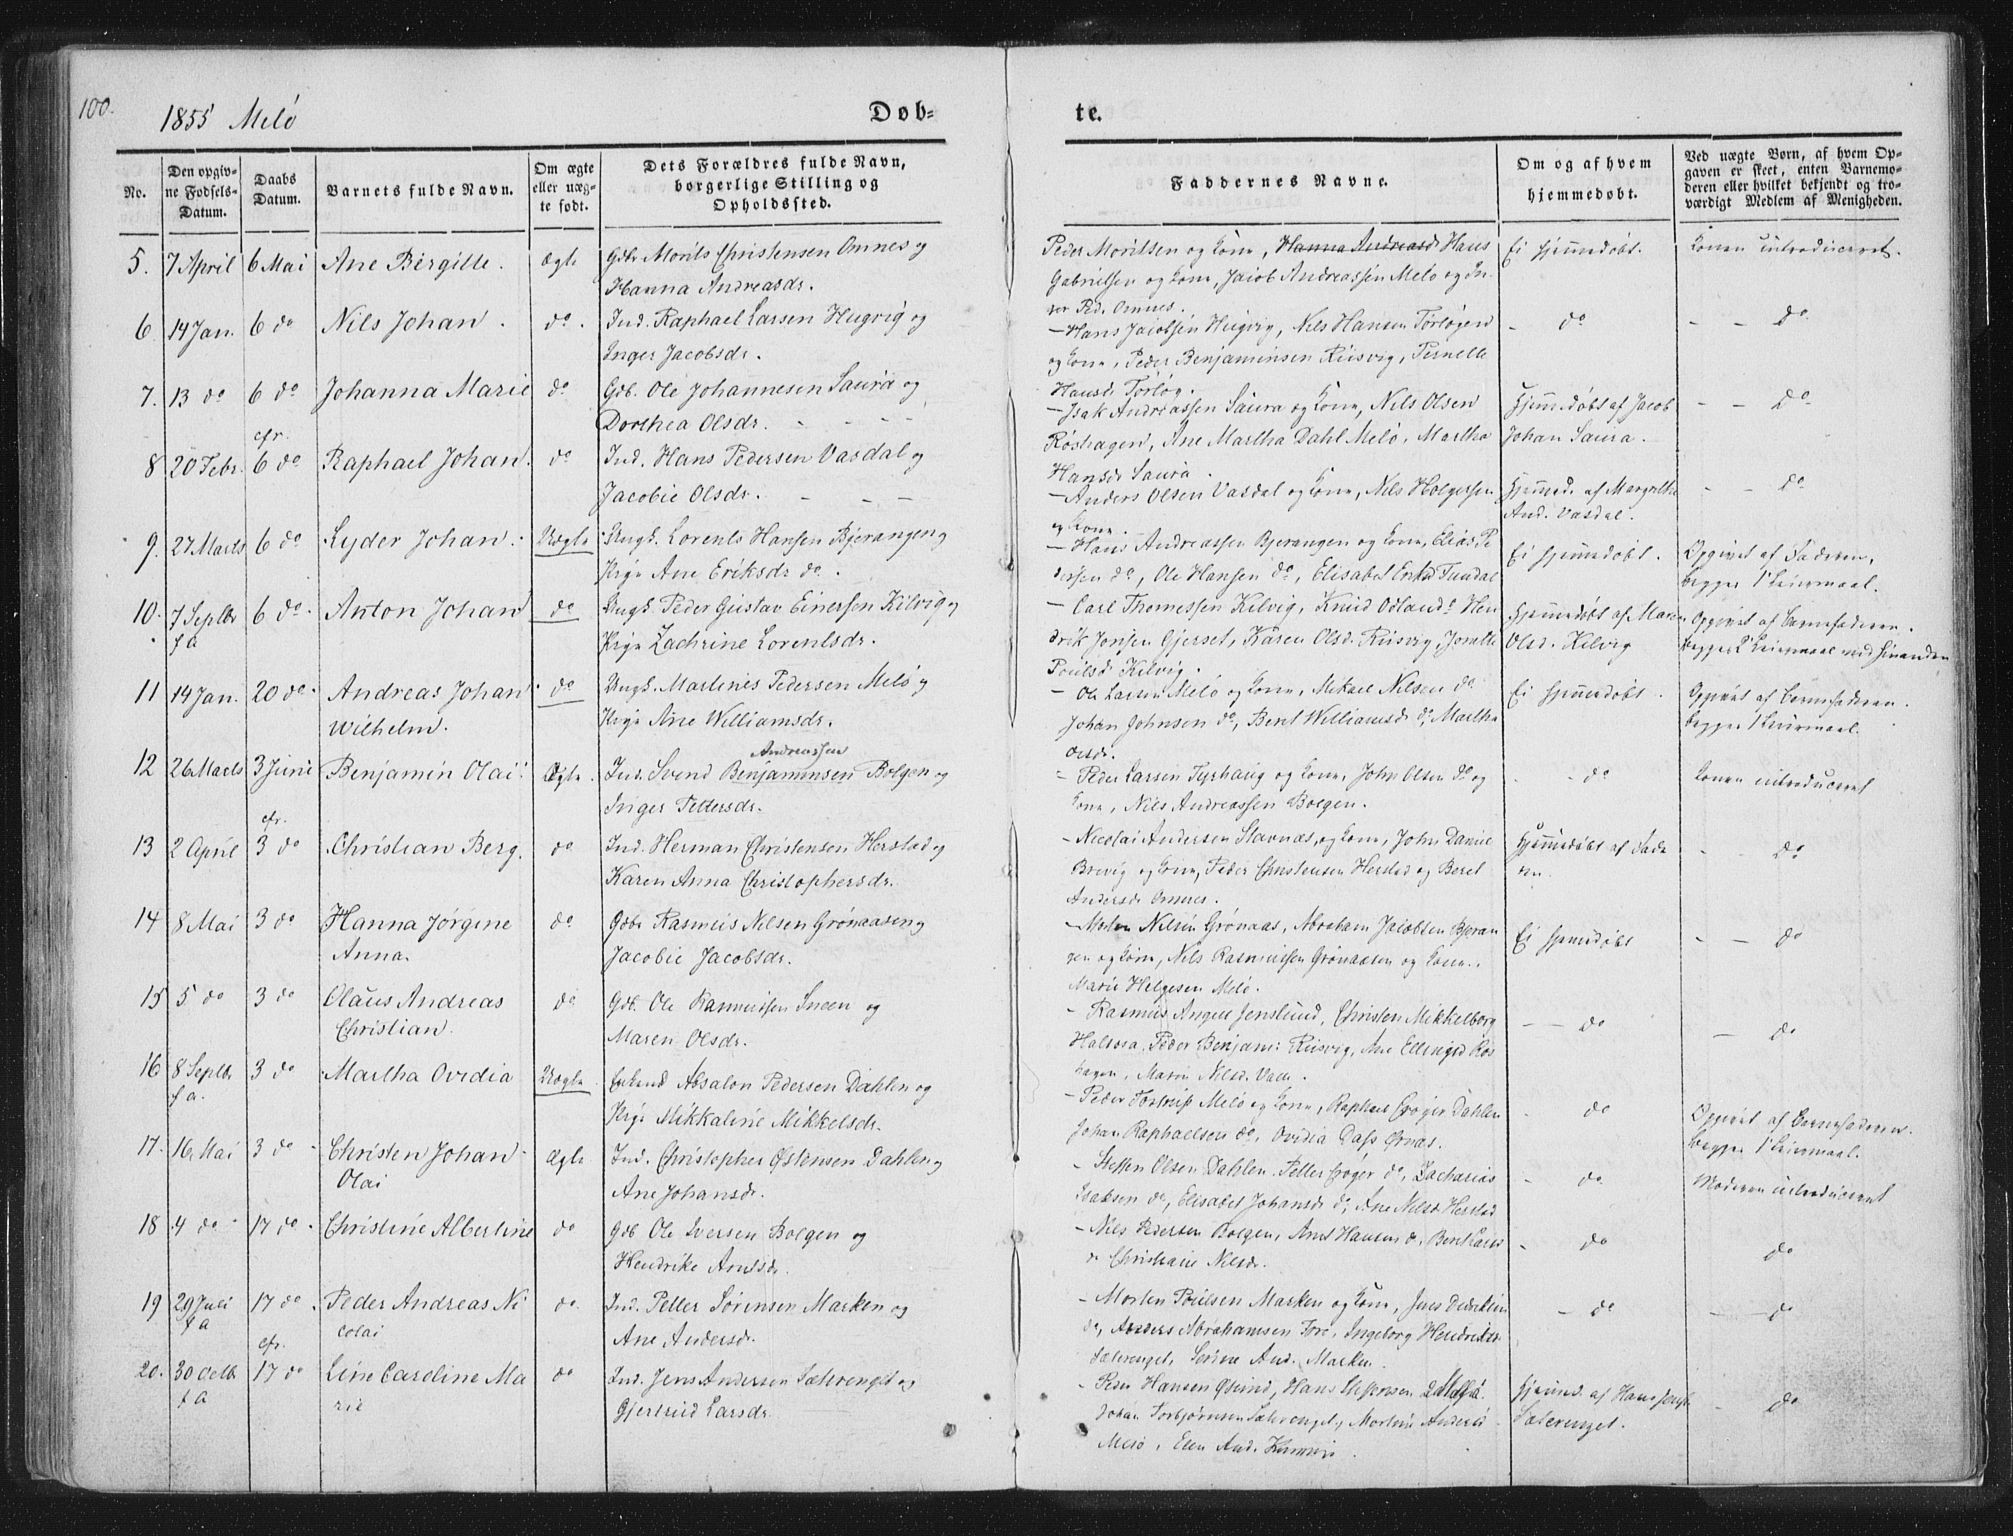 100.
1855 Melö
Døb=
te.
No.
Den opgiv-
ne Fødsels-
Datum.
Daabs
Datum.
Barnets fulde Navn.
Om ægte
eller uæg-
te født.
Dets Forældres fulde Navn,
borgerlige Stilling og
Opholdssted.
Faddernes Navne.
Om og af hvem
hjemmedøbt.
Ved uægte Børn, af hvem Op-
gaven er skeet, enten Barnemo-
deren eller hvilket bekjendt og tro-
værdigt Medlem af Menigheden.
5. 7 April 6 Mai Ane Birgitte. Ægte Gdbr Morits Christensen Omnes og
Hanna Andreasdr.
Peder Moritsen og Kone, Hanna Andreasdr Hans
Gabrielsen og Kone, Jacob Andreassen Melö og
Ped. Omnes.
Ei hjemmedøbt.
Konen introduceret.
6 14 Jan. 6 do Nils Johan. do. Ind. Raphael Larsen Hugvig og
Inger Jacobsdr.
– Hans Jacobsen Hugvig, Nils Hansen
og Kone, Peder Benjaminsen Riisvig, Pernelle
Hansdr
– do
– – do
7. 13 do 6 do Johanna Marie do Gdb. Ole Johannesen Saura og
Dorthea Olsdr. – – –
– Isak Andreassen Saura og Kone, Nils Olsen
Röshagen, Ane Martha Dahl Melö, Martha
Hansdr Saura.
Hjemmedøbt af Jacob
Johan Saura.
– – do
cfr.
8 20 Febr. 6 do Raphael Johan. do Ind. Hans Pedersen Vasdal og
Jacobie Olsdr. – – –
– Anders Olsen Vasdal og Kone, Nils Holgersen
og Kone.
Hjemmed. af Margrethe
And. Vasdal.
– – do
9. 27 Marts 6 do Lyder Johan. Uægte Ungk. Lorents Hansen Bjerangen og
Pige Ane Eriksdr do.
– Hans Andreassen Bjerangen og Kone, Elias Pe
dersen do, Ole Hansen do, Elisabet
Ei hjemmedøbt.
Opgivet af Faderen,
begges 1ste Leiermaal.
10. 7 Septbr 6 do Anton Johan do Ungk. Peder Gustav Einersen Kilvig og
f a
Pige Zachrine Lorentsdr.
– Carl Thomessen Kilvig, Knud Hen
drik Jonsen Gjerset, Karen Olsd. Riisvig,
Poulsdr Kilvig.
Hjemmedøbt af Maren
Olsd. Kilvig
Opgivet af Barnefaderen.
begges 2 Leiermaal med hinanden
11 14 Jan. 20 do Andreas Johan do Ungk. Martines Pedersen Melö og
Wilhelm.
Pige Ane Williamsdr.
– Ole Larsen Melö og Kone, Mikael Nilsen do
Johan Johnsen do, Berit Williamsdr do, Martha
Olsdr.
Ei hjemmedøbt.
Opgivet af Barnefaderen.
begges 1 Leiermaal.
Andreassen
12 26 Marts 3 Juni Benjamin Olai. Ægte. Ind. Svend Benjaminsen Bolgen og
Inger Pettersdr.
– Peder Larsen Tyrhaug og Kone, John Olsen do og
Kone, Nils Andreassen Bolgen.
– – do
Konen introduceret
cfr.
13 2 April 3 do Christian Berg. do Ind. Herman Christensen Herstad og
Karen Anna Christophersdr.
– Nicolai Andersen Stavnæs, og Kone, John Daniel
Brevig og Kone, Peder Christensen Herstad og Beret
Andersdr Omnes.
Hjemmedøbt af Fade
ren.
– – do
14 8 Mai 3 do Hanna Jörgine do Gdbr Rasmus Nilsen Grönaasen og
Anna.
Jacobie Jacobsdr.
– Morten Nilsen Grönaas, Abraham Jacobsen Bjeran
gen og Kone, Nils Rasmussen Grönaasen og Kone.
Marie Helgesen Melö.
Ei hjemmedøbt
– – do
15 5 do 3 do Olaus Andreas do Gdb. Ole Rasmussen Sneen og
Christian.
Maren Olsdr.
– Rasmus Angell Jenslund, Christen Mikkelborg
Halsosa, Peder Benjam: Riisvig, Ane Ellingsd Rös
hagen, Maren Nilsd.
– – do
– do
16 8 Septbr 3 do Martha Ovidia Uægte. Enkemd Absalon Pedersen Dahlen og
f a.
Pige Mikkaline Mikkelsdr.
– Peder Melö og Kone, Raphael Dahlen
Johan Raphaelsen do, Ovidia Dass
– do
Opgivet af Barnefaderen.
begges 1 Leiermaal.
17. 16 Mai 3 do Christen Johan Ægte Ind. Christopher Östensen Dahlen og
Olai
Ane Johansdr.
– Steffen Olsen Dahlen, Petter do, Zacharias
Isaksen do, Elisabet Johansdr do, Ane Nilsdr Herstad
– do
Moderen introduceret
18 4 do 17 do Christine Albertine do Gdb Ole Iversen Bolgen og
Hendrike Arntsdr.
– Nils Pedersen Bolgen, Arnt Hansen do,
Christiane Nilsdr.
– do
do
19 29 Juli 17 do Peder Andreas Ni do Ind. Petter Sörensen Marken og
f a
colai
Ane Andersdr.
– Morten Poulsen Marken og Kone, Jens Didriksen
do, Anders Abrahamsen Fore, Ingeborg Hendriksdr
Sæterenget, And. Marken.
– do
– do
cfr.
20. 30 Octb 17 do Line Caroline Ma do Ind. Jens Andersen Sæterenget og
f a
rie
Gjertrud Larsdr.
– Peder Hansen Hans
Johan Torbjörnsen Sæterenget, Andersdr
Melö, Elen And.
Hjemmd. af Hans
Sæterenget.
– do